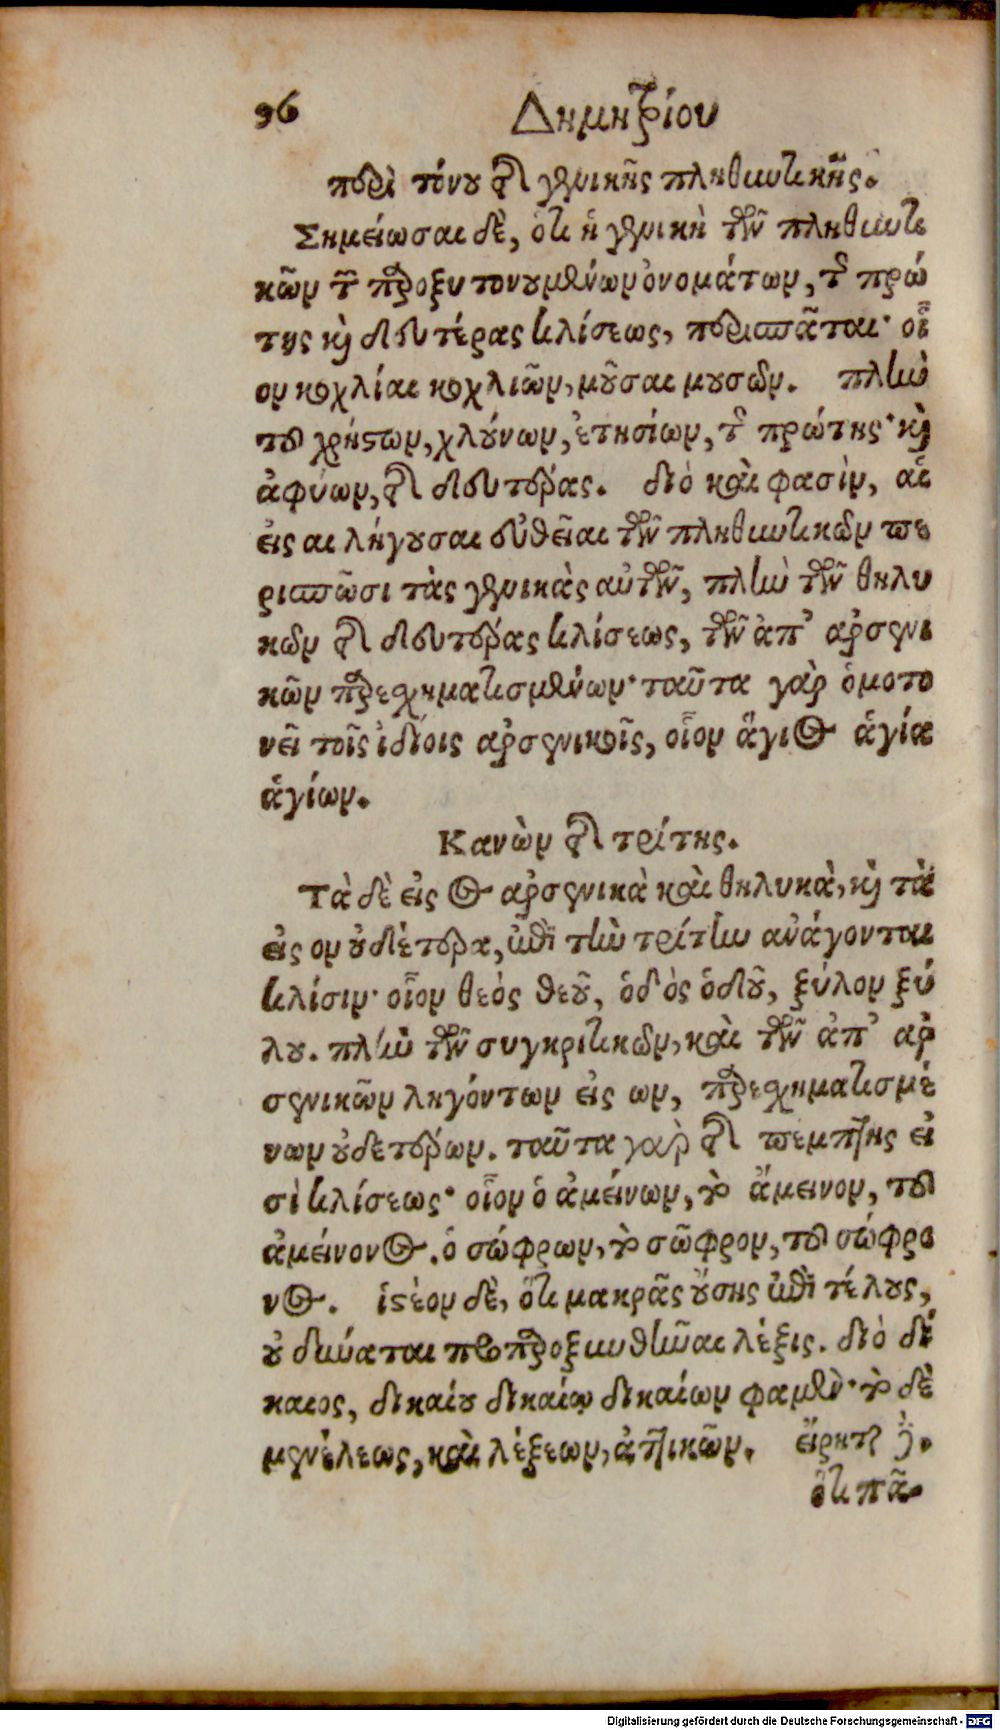 96 Δημητρίου
περὶ τόνου τῆς γενικῆς πληθυντικῆς.
Σημείωσαι δὲ, ὅτι ἡ γενικὴ τῶν πληθυντι
κῶν τῶν παροξυτονουμένων ὀνομάτων, τῆς πρώ
της καὶ δευτέρας κλίσεως, περισπᾶται· οἷ
ον κοχλίαι κοχλιῶν, μοῦσαι μουσῶν. πλὴν
τοῦ χρήστων, χλούνων, ἐτησίων, τῆς πρώτης· καὶ
ἀφύων, τῆς δευτέρας. διὸ καὶ φασὶν, αἱ
εἰς αι λήγουσαι εὐθεῖαι τῶν πληθυντικῶν πε
ρισπῶσι τὰς γενικὰς αὐτῶν, πλὴν τῶν θηλυ
κῶν τῆς δευτέρας κλίσεως, τῶν ἀπ’ ἀρσενι
κῶν παρεσχηματισμένων· ταῦτα γὰρ ὁμοτο
νεῖ τοῖς ἰδίοις ἀρσενικοῖς, οἷον ἅγιος ἁγία
ἁγίων.
Κανὼν τῆς τρίτης.
Τὰ δὲ εἰς ος ἀρσενικὰ καὶ θηλυκὰ, καὶ τὰ
εἰς ον οὐδέτερα, ἐπὶ τὴν τρίτην ἀνάγονται
κλίσιν· οἷον θεὸς θεοῦ, ὁδὸς ὁδοῦ, ξύλον ξύ
λου. πλὴν τῶν συγκριτικῶν, καὶ τῶν ἀπ’ ἀρ
σενικῶν ληγόντων εἰς ων, παρεσχηματισμέ
νων οὐδετέρων. ταῦτα γὰρ τῆς πέμπτης εἰ
σὶ κλίσεως· οἷον ὁ ἀμείνων, τὸ ἄμεινον, τοῦ
ἀμείνονος. ὁ σώφρων, τὸ σῶφρον, τοῦ σώφρο
νος. ἰστέον δὲ, ὅτι μακρᾶς οὔσης ἐπὶ τέλους,
οὐ δύναται προπαροξυνθῆναι λέξις. διὸ δί
καιος, δικαίου δικαίῳ δικαίων φαμέν· τὸ δὲ
μενέλεως, καὶ λέξεων, ἀττικῶν. εἴρηται
ὅτι πᾶ-
Digitalisierung gefördert durch die Deutsche Forschungsgemeinschaft - DFG